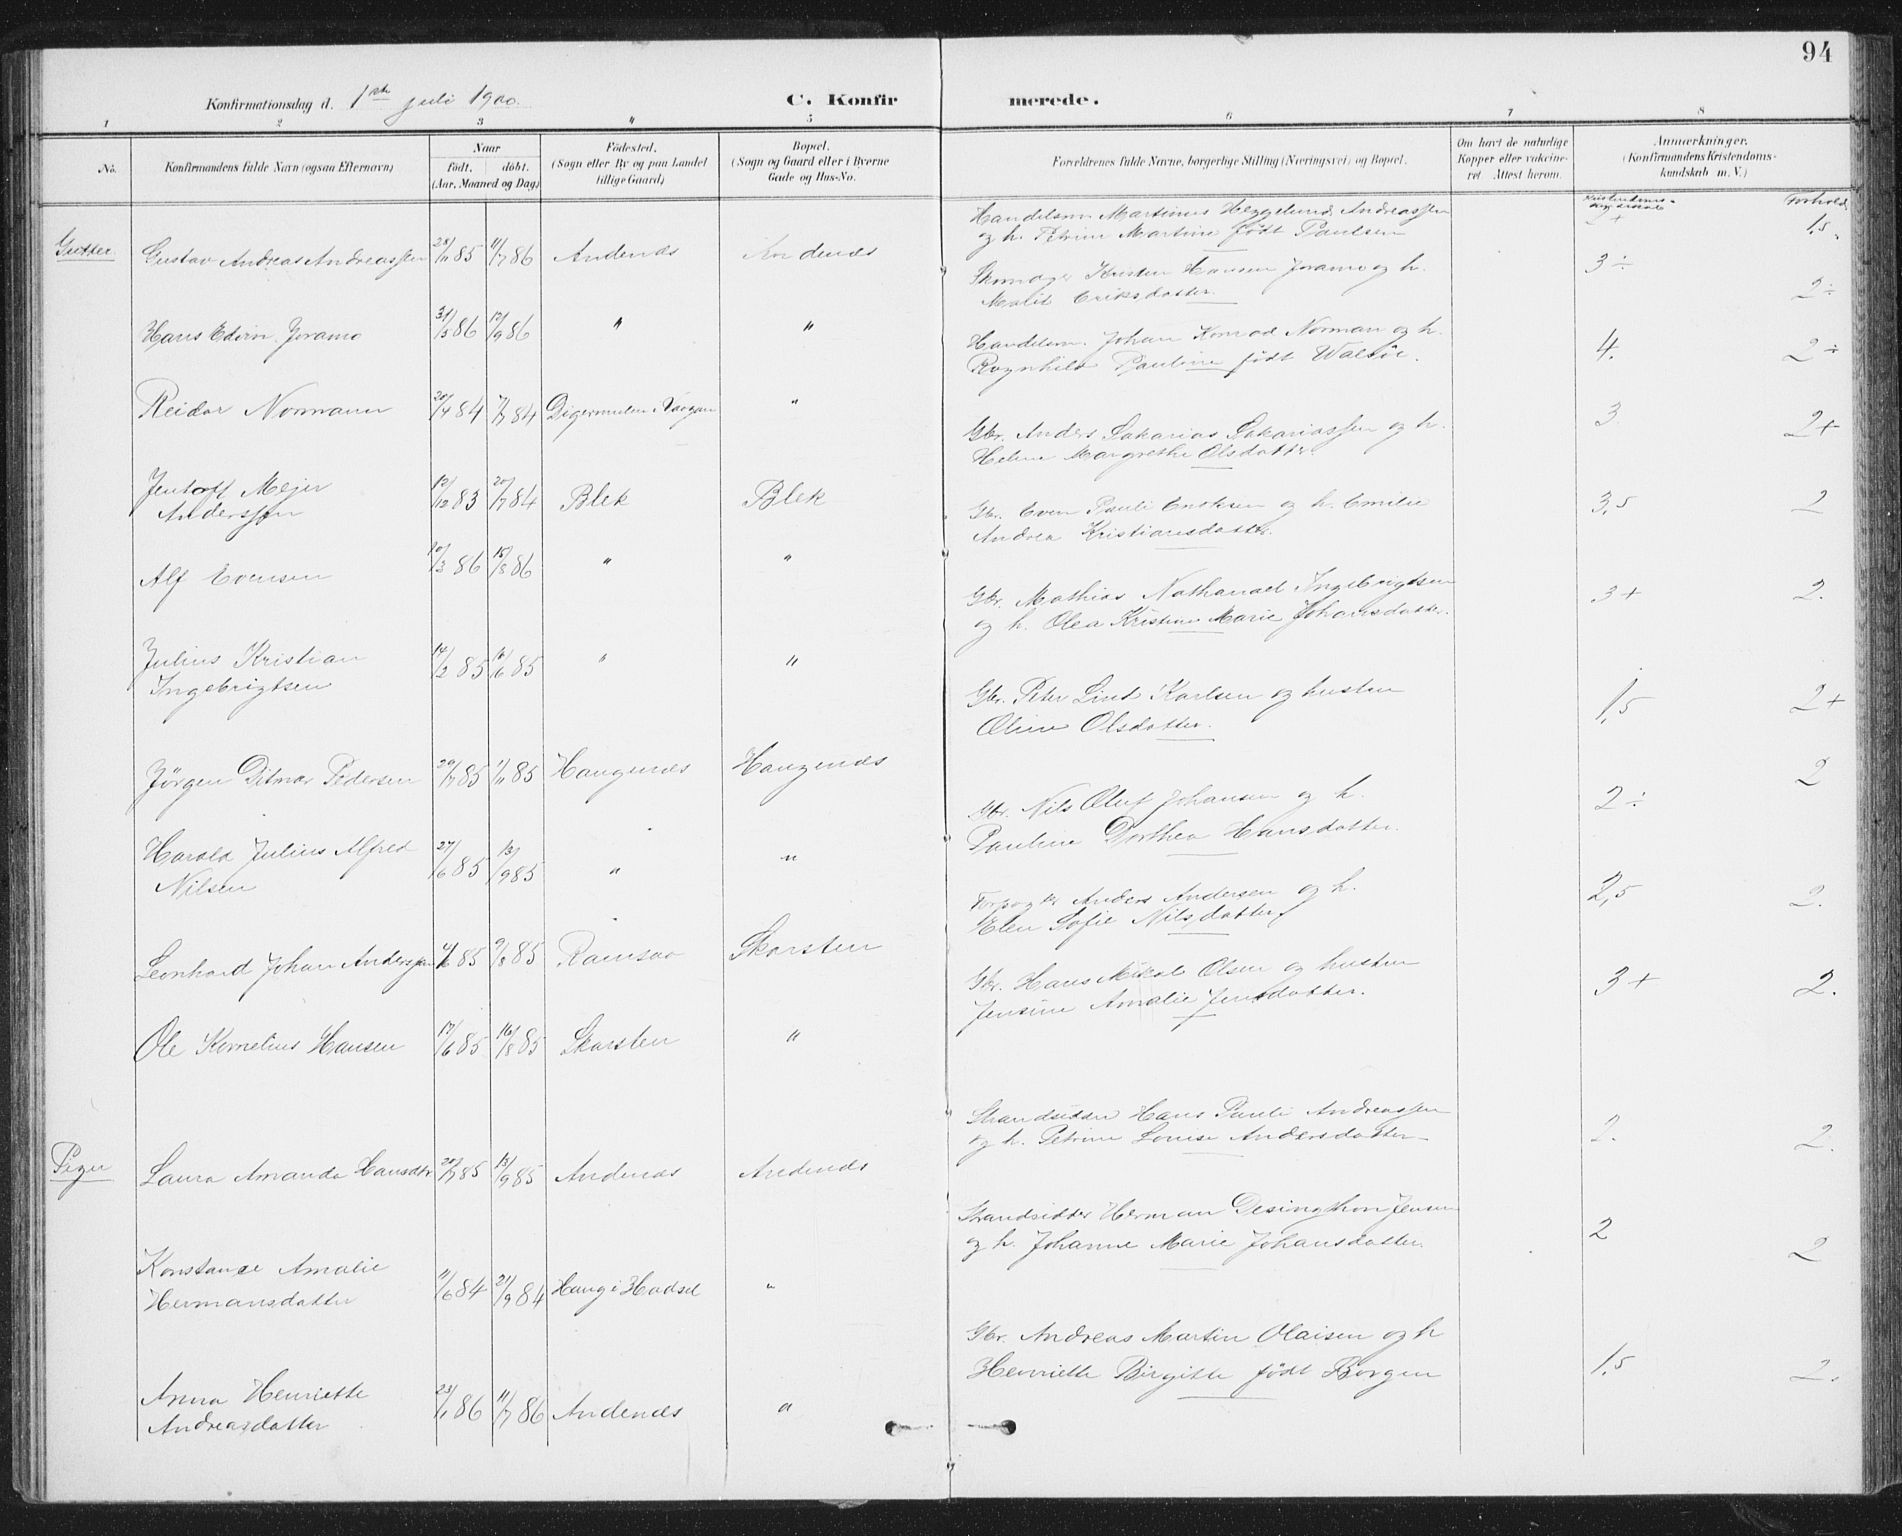 94
Konfirmationsdag d. 1ste juli 1900.
C. Konfirmerede.
1 2 3 4 5 6 7 8
No.
Konfirmandens fulde Navn (ogsaa Efternavn)
Naar
født. døbt.
(Aar, Maaned og Dag)
Fødested.
(Sogn eller By og paa Landet
tillige Gaard)
Bopæl.
(Sogn og Gaard eller i Byerne
Gade og Hus-No.
Forældrenes fulde Navne, borgerlige Stilling (Næringsvei) og Bopæl.
Om havt de naturlige
Kopper eller vakcine-
ret. Attest herom.
Anmærkninger.
(Konfirmandens Kristendoms-
kundskab m. V.)
Forhold
Gutter.
Gustav Andreas Andreassen 28/11 85 11/7 86 Andenæs Andenæs
Handelsm Martinus Heggelund Andreassen
og h. Petrine Martine født Paulsen
2+ 1,5
Hans Edvin Joramo 31/5 86 12/9 86 " "
Skomager Kristen Hansen Joramo og h.
Malit Eriksdatter.
3÷ 2÷
Reidar Normann 20/4 84 7/7 84 Digermulen i Vaagan "
Handelsm. Johan Konrad Norman og h.
Ragnhild Pauline født Walsöe.
4. 2÷
Jentoft Mejer
Anderssen 12/12 83 20/7 84 Blek Blek
Gbr. Anders Sakarias Sakariassen og h.
Helene Margrethe Olsdatter.
3 2+
Alf Evensen 10/3 86 15/8 86 " "
Gbr. Even Pauli Enoksen og h. Emilie
Andrea Kristiansdatter.
3,5 2
Julius Kristian
Ingebrigtsen 14/2 85 16/6 85 " "
Gbr. Mathias Nathanael Ingebrigtsen
og h. Olea Kristine Marie Johansdatter.
3+ 2.
Jørgen Ditmar Pedersen 20/7 85 1/11 85 Haugnæs Haugenæs
Gbr. Peter Lind Karlsen og hustru
Oline Olsdatter.
1,5 2+
Harald Julius Alfred
Nilsen 27/6 85 13/9 85 " "
Gbr. Nils Oluf Johansen og h.
Pauline Dorthea Hansdatter.
2÷ 2
Leonhard Johan Anderssen 4/6 85 9/8 85 Ramsaa Skarsten
Anders Andersen og h.
Elen Sofie Nilsdatter
2,5 2.
Ole Kornelius Hansen 17/6 85 16/8 85 Skarsten "
Gbr. Hans Mikal Olsen og hustru
Jensine Amalie Jensdatter.
3+ 2.
Piger
Laura Amanda Hansdtr 20/7 85 13/9 85 Andenæs Andenæs
Strandsidder Hans Pauli Andreassen
og h. Petrine Louise Andersdatter
2. 2.
Konstance Amalie
Hermansdatter 11/6 84 21/9 84 Haug i Hadsel "
Strandsidder Herman Desingthon Jensen
og h. Johanne Marie Johansdatter.
2 2
Anna Henriette
Andreasdatter 23/1 86 11/7 86 Andenæs "
Gbr. Andreas Martin Olaisen og h
Henriette Birgitte født Borgen
1,5 2.